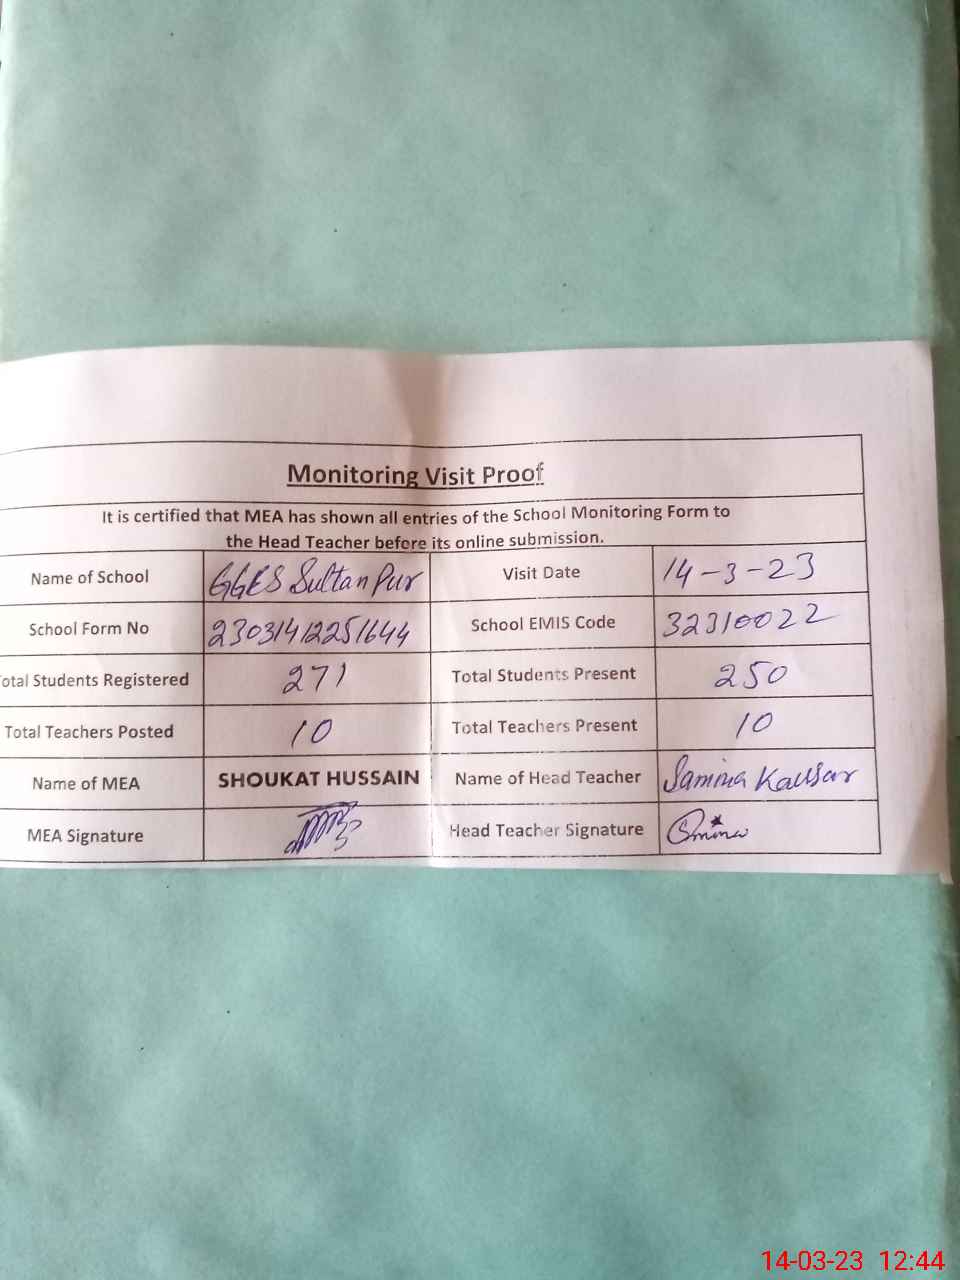 Monitoring Visit Proof
It is certified that MEA has shown all entries of the School Monitoring Form to
the Head Teacher before its online submission.
Name of School GGES Sultan Pur Visit Date 14-3-23
School Form No 23031412251644 School EMIS Code 32310022
otal Students Registered 271 Total Students Present 250
Total Teachers Posted 10 Total Teachers Present 10
Name of MEA SHOUKAT HUSSAIN Name of Head Teacher Samina Kausar
MEA Signature Head Teacher Signature
14-03-23 12:44